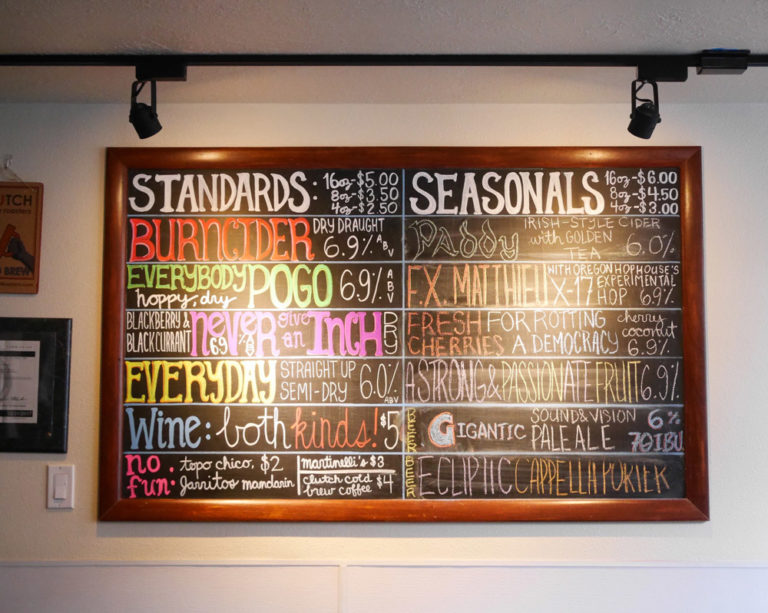 STANDARDS: 16oz-$5.00
8oz-$3.50
4oz-$2.50
BURNCIDER DRY DRAUGHT
6.9% ABV
EVERYBODY POGO 6.9% ABV
hoppy, dry
BLACKBERRY & BLACKCURRANT never give an INCH DRY
6.9%
EVERYDAY STRAIGHT UP SEMI-DRY 6.0% ABV
Wine: both kinds! $5
no fun: topo chico, $2
Jarritos mandarin
martinelli's $3
clutch cold brew coffee $4
SEASONALS 16oz-$6.00
8oz-$4.50
4oz-$3.00
Paddy IRISH-STYLE CIDER with GOLDEN TEA 6.0%
F.X. MATTHIEU X-17 WITH OREGON HOPHOUSE'S EXPERIMENTAL HOP 6.9%
FRESH CHERRIES FOR ROTTING A DEMOCRACY cherry coconut 6.9%
A STRONG & PASSIONATE FRUIT 6.9%
BEER GIGANTIC SOUND & VISION PALE ALE 6% 70 IBU
BEER ECLIPTIC CAPPELLA PORTER
CLUTCH
roasters
BREW